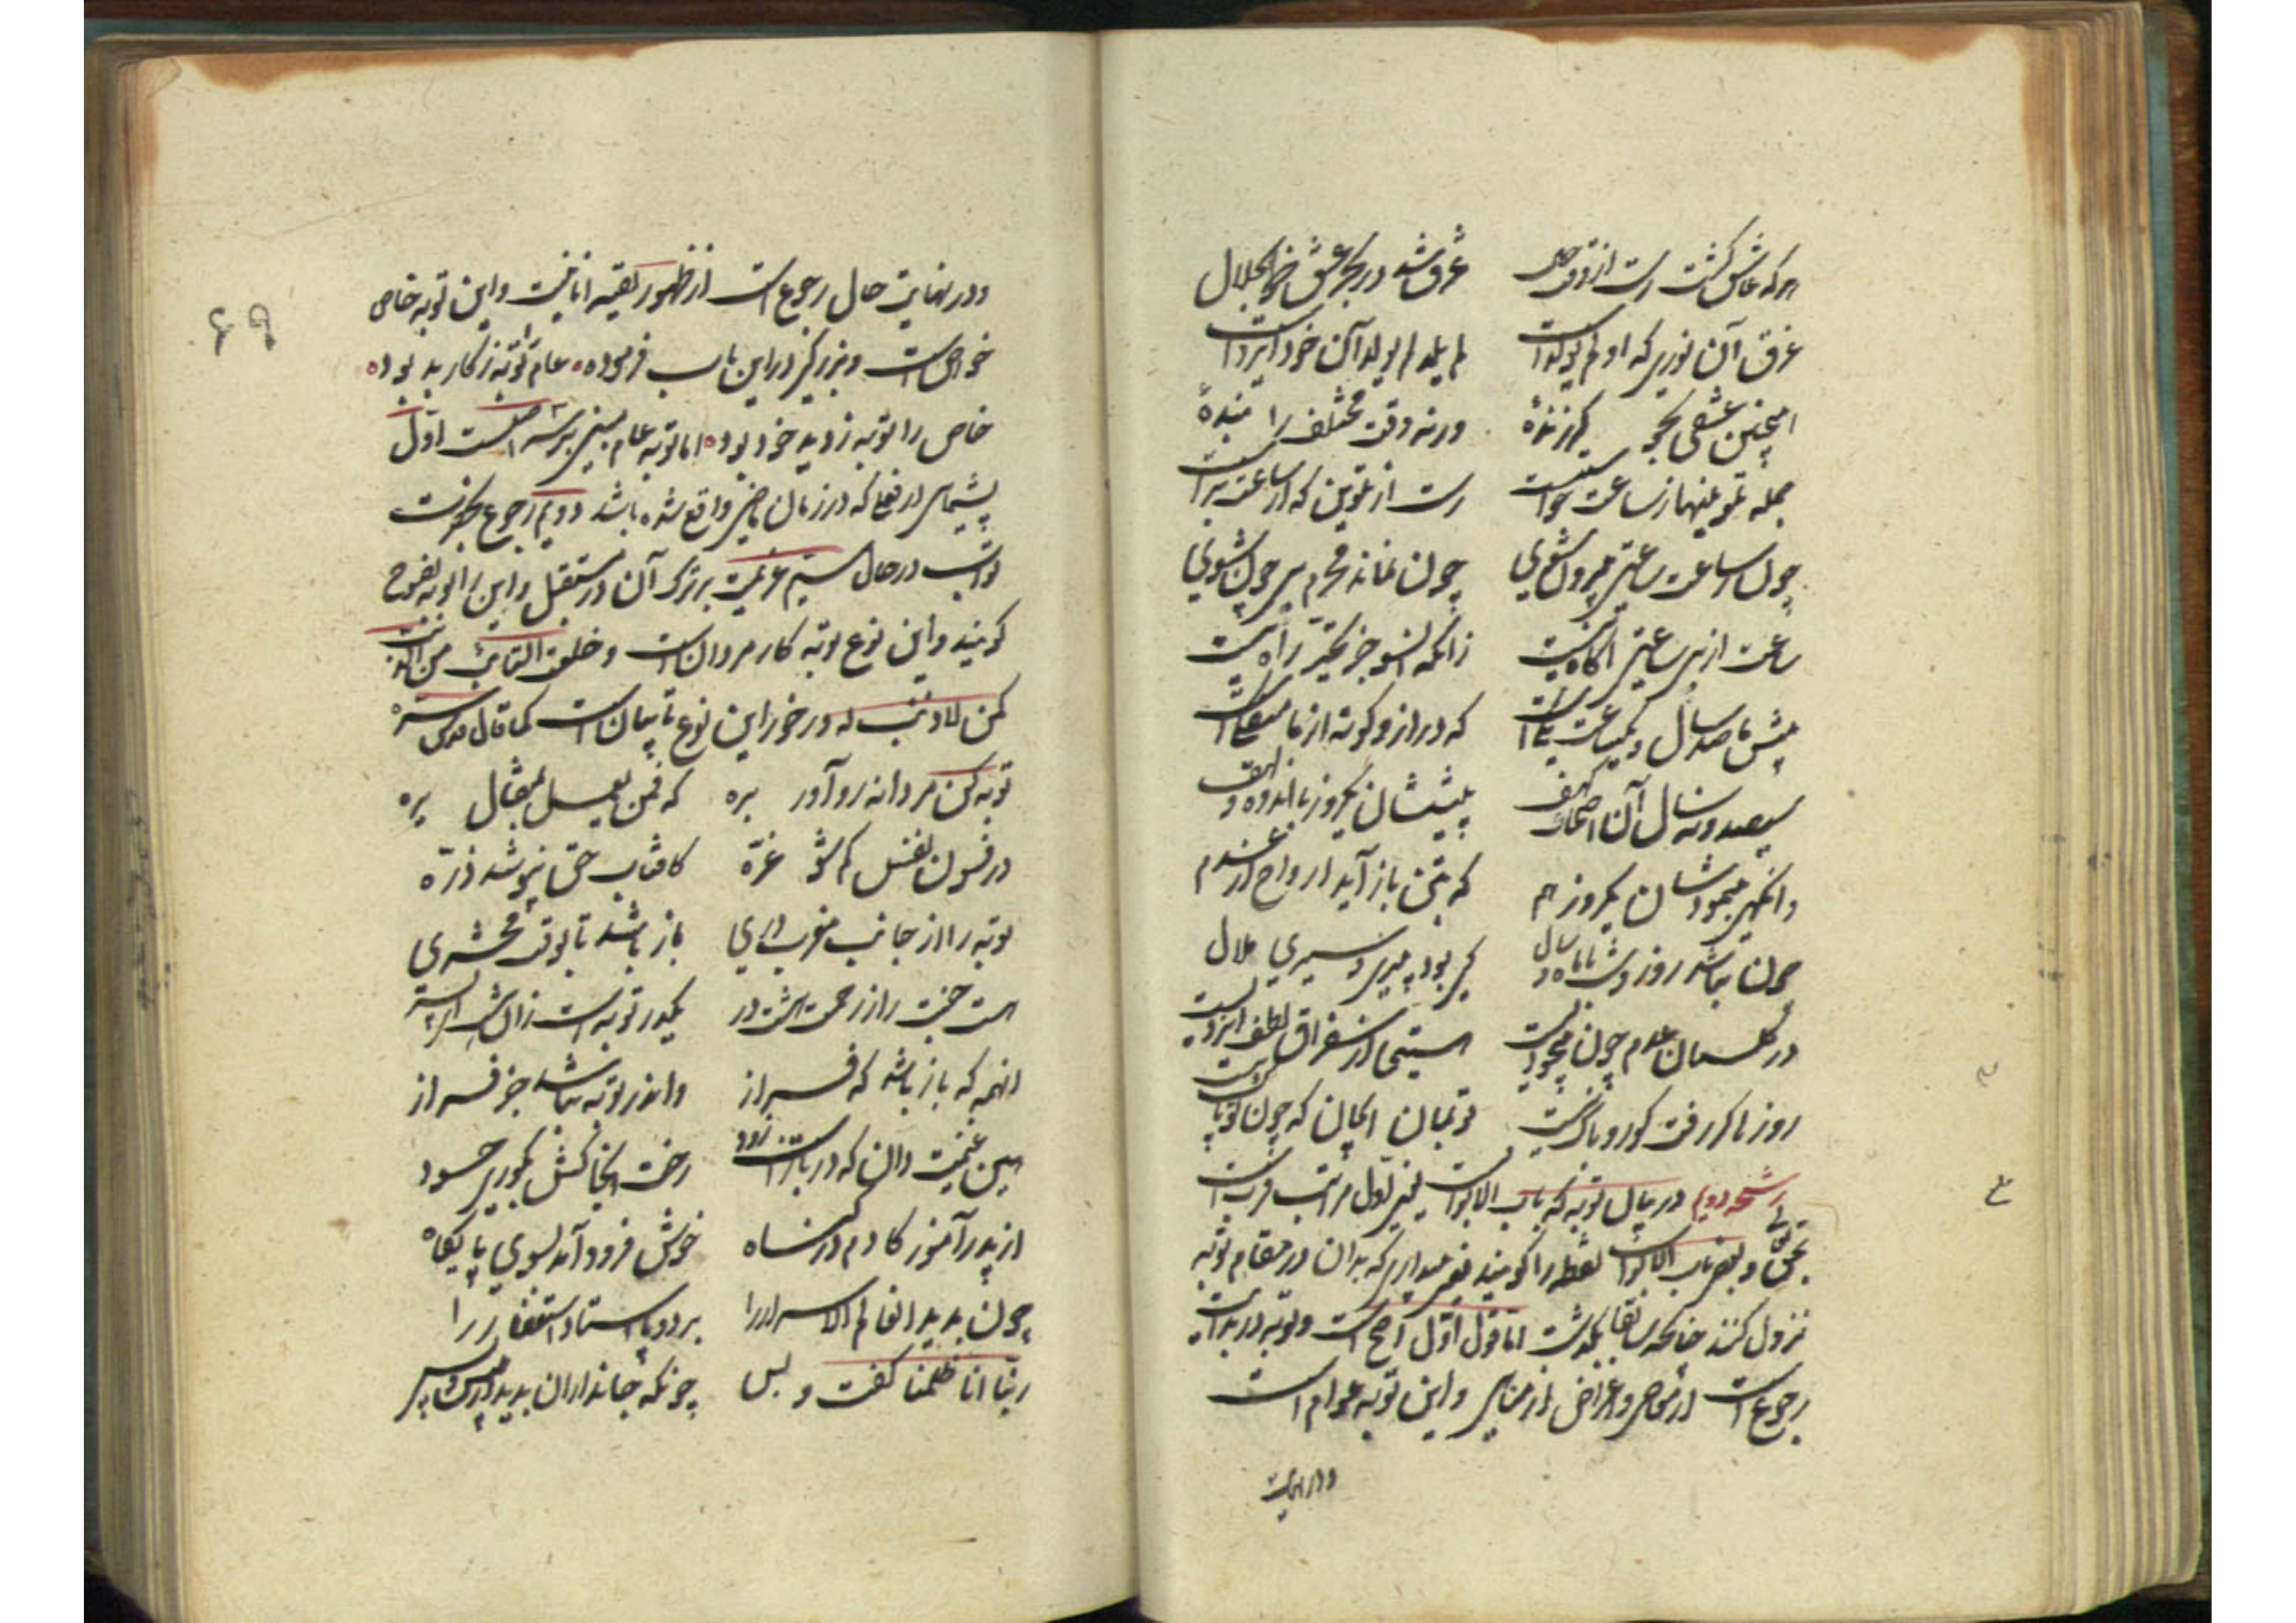 هرکه عاشق گشت رست از وقت و حال غرق شد در بحر عشق ذوالجلال
غرق آن نوری که او لم یولد است لم یلد لم یولد آن خود ایزد است
اینچنین عشقی بجو گر زنده ورنه وقت مختلف را بنده
جمله تلوینها ز ساعت خواست رست از تلوین که از ساعت براست
چون ز ساعت ساعتی بیرون شوی چون نماند محرم بیچون شوی
ساعت از بی ساعتی آگاه نیست زانکه آنسو جز تحیر راه نیست
پیش ما صد سال و یکساعت یکیست که دراز و کوته از ما
سیصد و نه سال آن اصحاب کهف پیششان یکروز بی اندوه و لهف
وانگهی بنمودشان یکروز هم که بتن باز آید ارواح از عدم
چون نباشد روز و شب با ماه و سال کی بود پیری و سیری ملال
در گلستان عدم چون بیخودیست مستی از سغراق لطف ایزدیست
روز تا کر رفت کو رو باک نیست تو بمان ای آن که چون تو پاک نیست
رشحه دویم در بیان توبه که باب الابواب است یعنی اول مراتب قرب است
بحق تعالی و بعضی باب الابواب یقظه را گویند یعنی بیداری که بدان در مقام توبه
نزول کنند چنانکه سابقا گذشت اما قول اول اصح است و توبه در بدایت
رجوع است از معاصی و اعراض از مناهی و این توبه عوام است
و در نهایت
۶۹
و در نهایت حال رجوع است از ظهور بقیه انانیت و این توبه خاص
خواص است و بزرگی در این باب فرموده عام را توبه ز کار بد بود
خاص را توبه ز دید خود بود اما توبه عام مبنی بر سه اصلست اول
پشیمانی از فعلی که در زمان ماضی واقع شده باشد دویم رجوع بحضرت
تواب در حال سیم عزیمت بر ترک آن در مستقبل و این را توبه نصوح
گویند و این نوع توبه کار مردان است و خلعت التائب من الذنب
کمن لا ذنب له در خور این نوع تائبان است کما قال قدس سره
توبه کن مردانه رو آور بره که فمن یعمل بمثقال یره
در فسون نفس کم شو غره کافتاب حق نپوشد ذره
توبه را از جانب مغرب دری باز باشد تا بوقت محشری
هست جنت را ز رحمت هشت در یکدر توبه است زان هشت ای پسر
آنهمه گه باز باشد گه فراز وان در توبه نباشد جز فراز
هین غنیمت دان که در باز است زود رخت آنجا کش بکوری حسود
از پدر آموز کادم در گناه خوش فرود آمد بسوی پایگاه
چون بدید آن عالم الاسرار را بر دو پا استاد استغفار را
ربنا انا ظلمنا گفت و بس چونکه جانداران بدید از پیش و پس